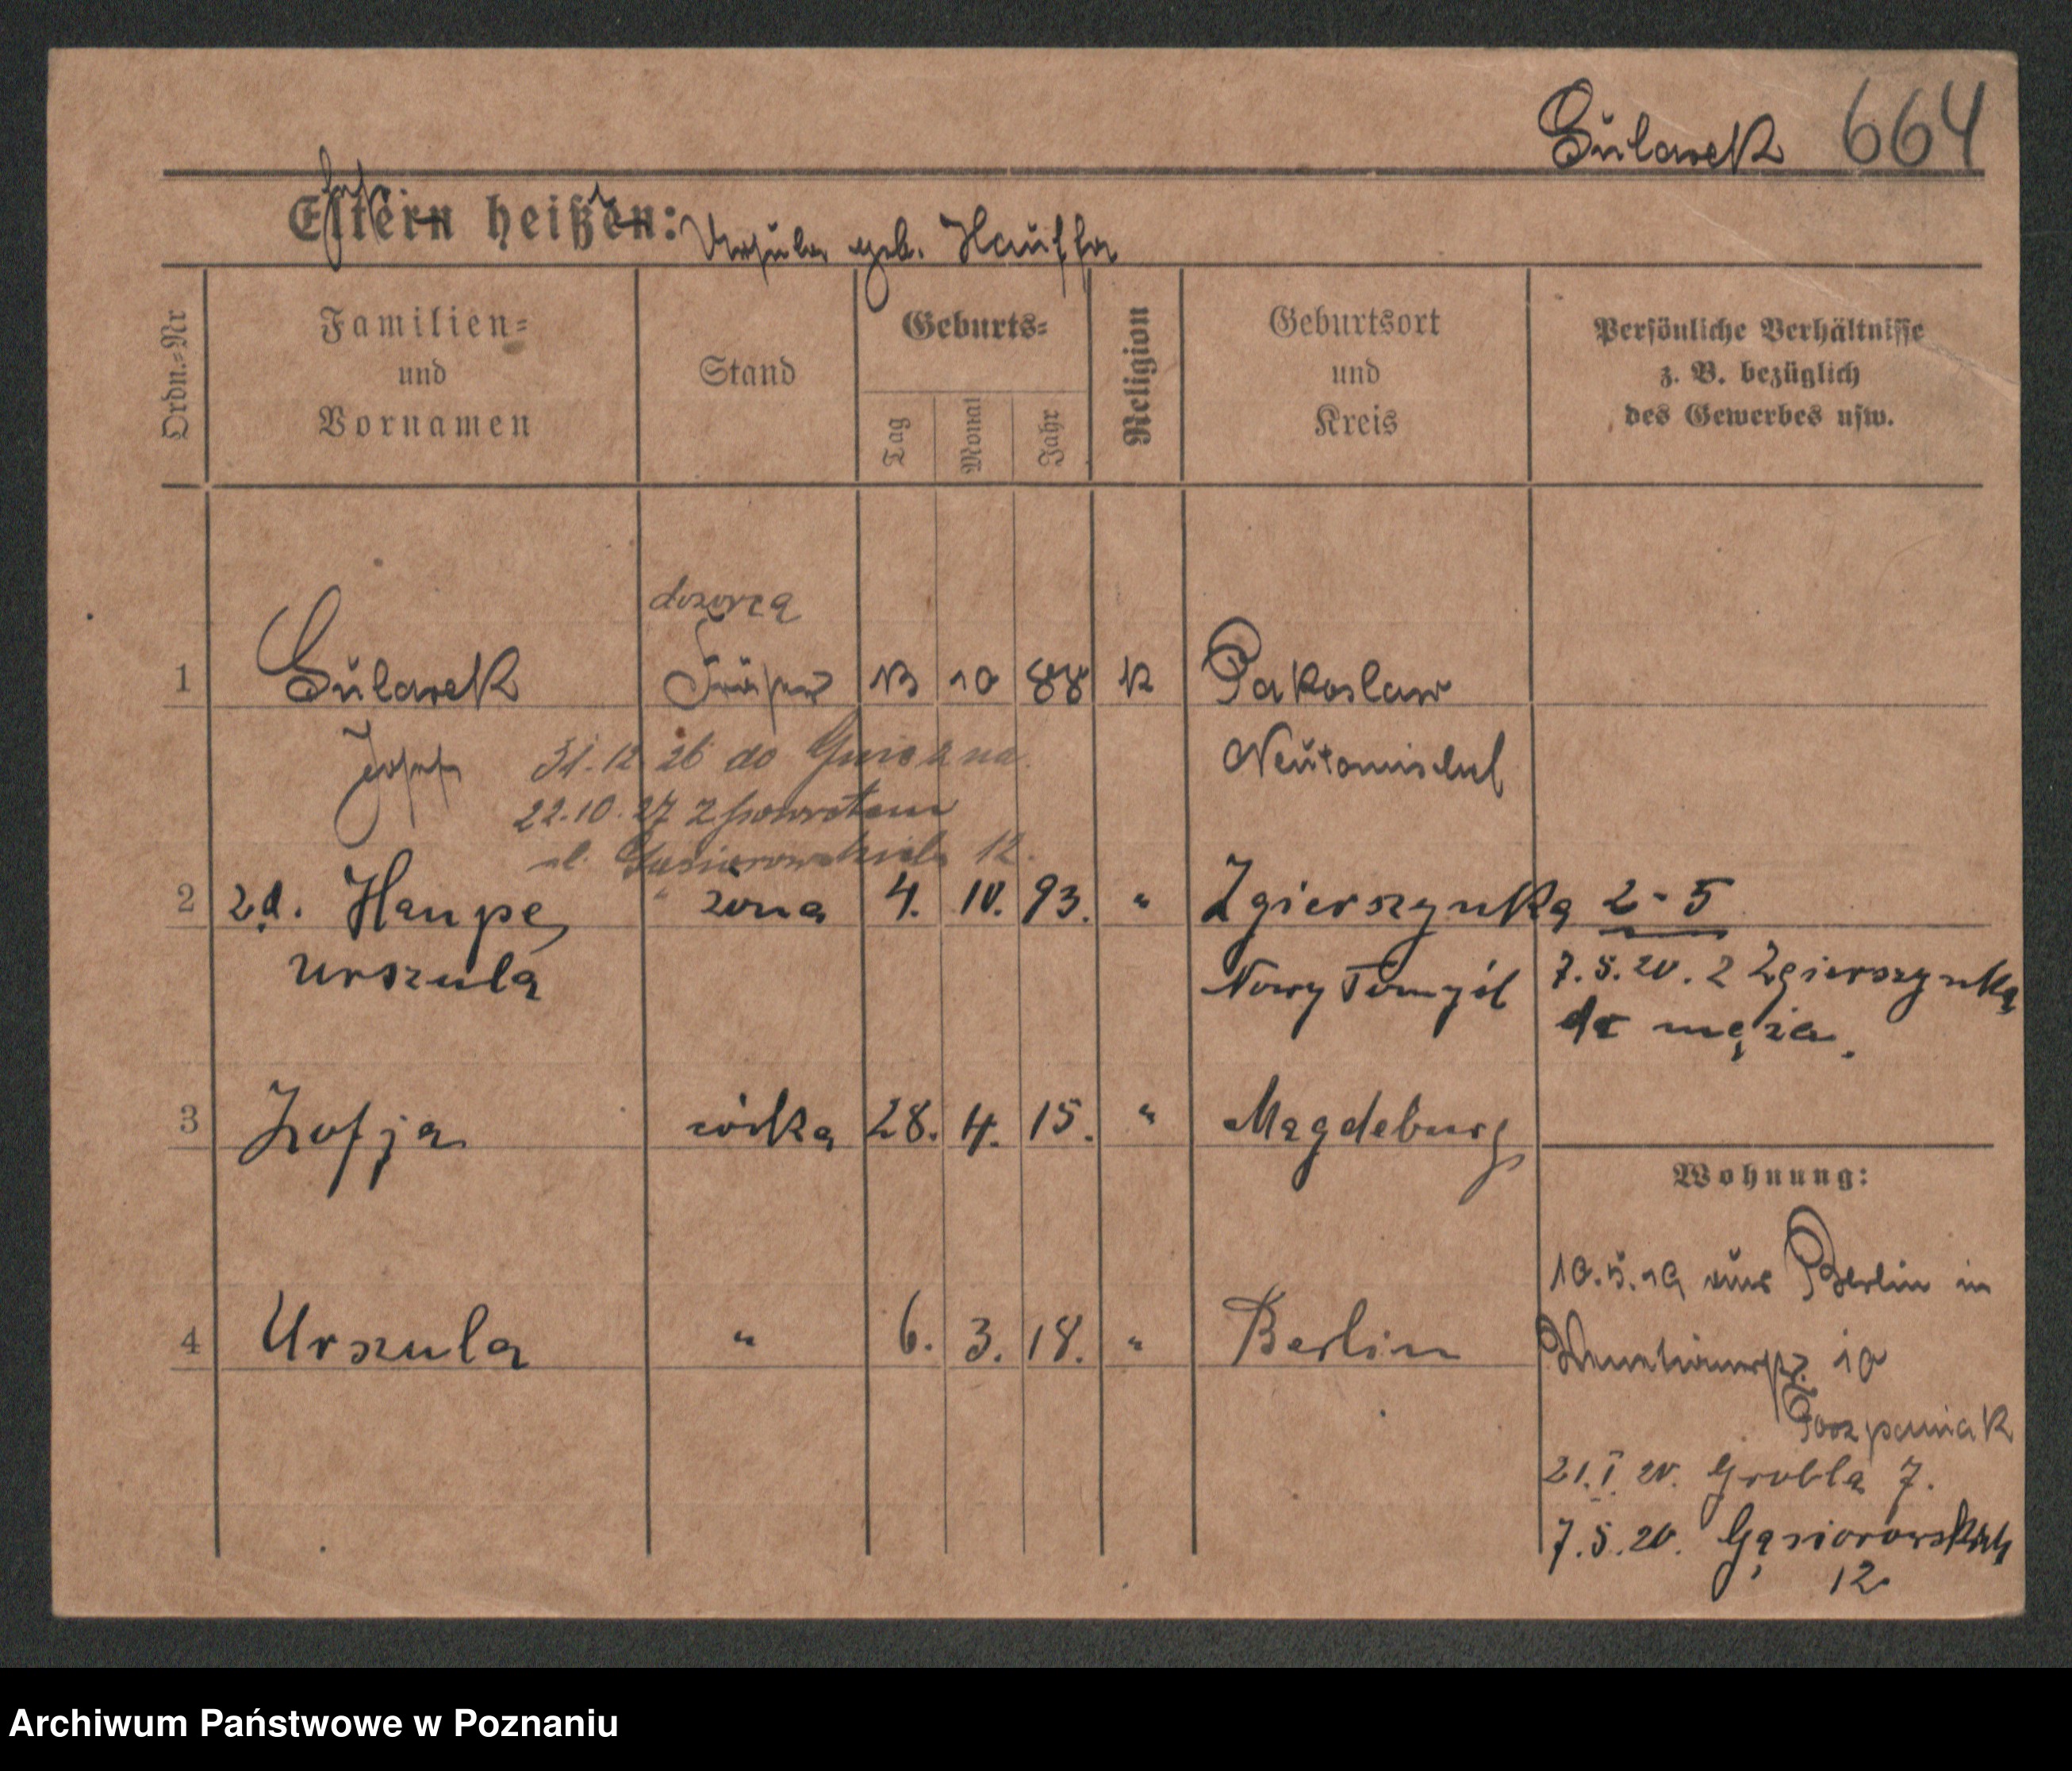 Sularek 664
Eltern heißen: Ursula geb. Hauffa
Ordn.=Nr
Familien=
und
Vornamen
Stand
Geburts=
Tag
Monat
Jahr
Religion
Geburtsort
und
Kreis
Persönliche Verhältnisse
z. B. bezüglich
des Gewerbes usw.
dozorca
1 Sularek 13 10 88 K Pakoslaw
Josef Neutomischel
31.12 26 do Gniezna
22.10.27 z powrotem
ul. Gąsiorowskich 12.
2 zd. Haupe żona 4. 10. 93. " Zgierszynka 2-5
Urszula Nowy Tomyśl
7.5.20. z Zgierszynka
do męża.
3 Zofja córka 28. 4. 15. " Magdeburg
Wohnung:
10.5.19 aus Berlin in
10
4 Urszula " 6. 3. 18. " Berlin
21.I.20. Grobla 7.
7.5.20. Gąsiorowskich
12
Archiwum Państwowe w Poznaniu